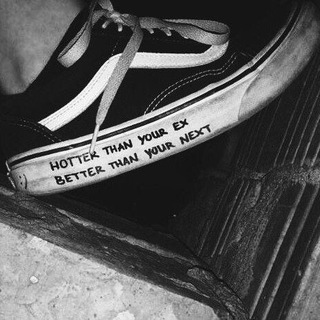 HOTTER THAN YOUR EX
BETTER THAN YOUR NEXT